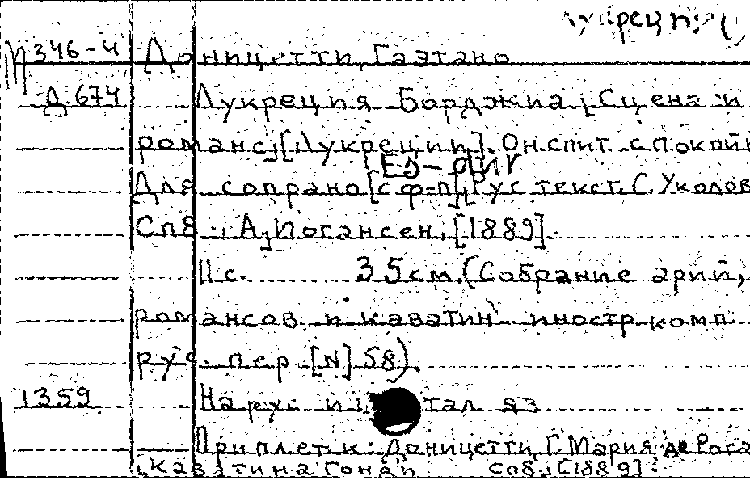 Лукреция
М 346-4 Доницетти, Гаэтано
Д 674 Лукреция Борджиа. [Сцена и
романс] [Лукреции]. Он спит спокойн
[Es-dur]
Для сопрано [с ф-п.] Рус. текст. С. Уколов
Спб., А. Иогансен, [1889].
11 с. 35 см. (Собрание арий,
романсов и каватин иностр. комп.
рус. пер. [N] 58).
1359 На рус. и итал. яз.
Приплет. к: Доницетти, Г. Мария де Рога
Каватина Гонди Спб., [1889].